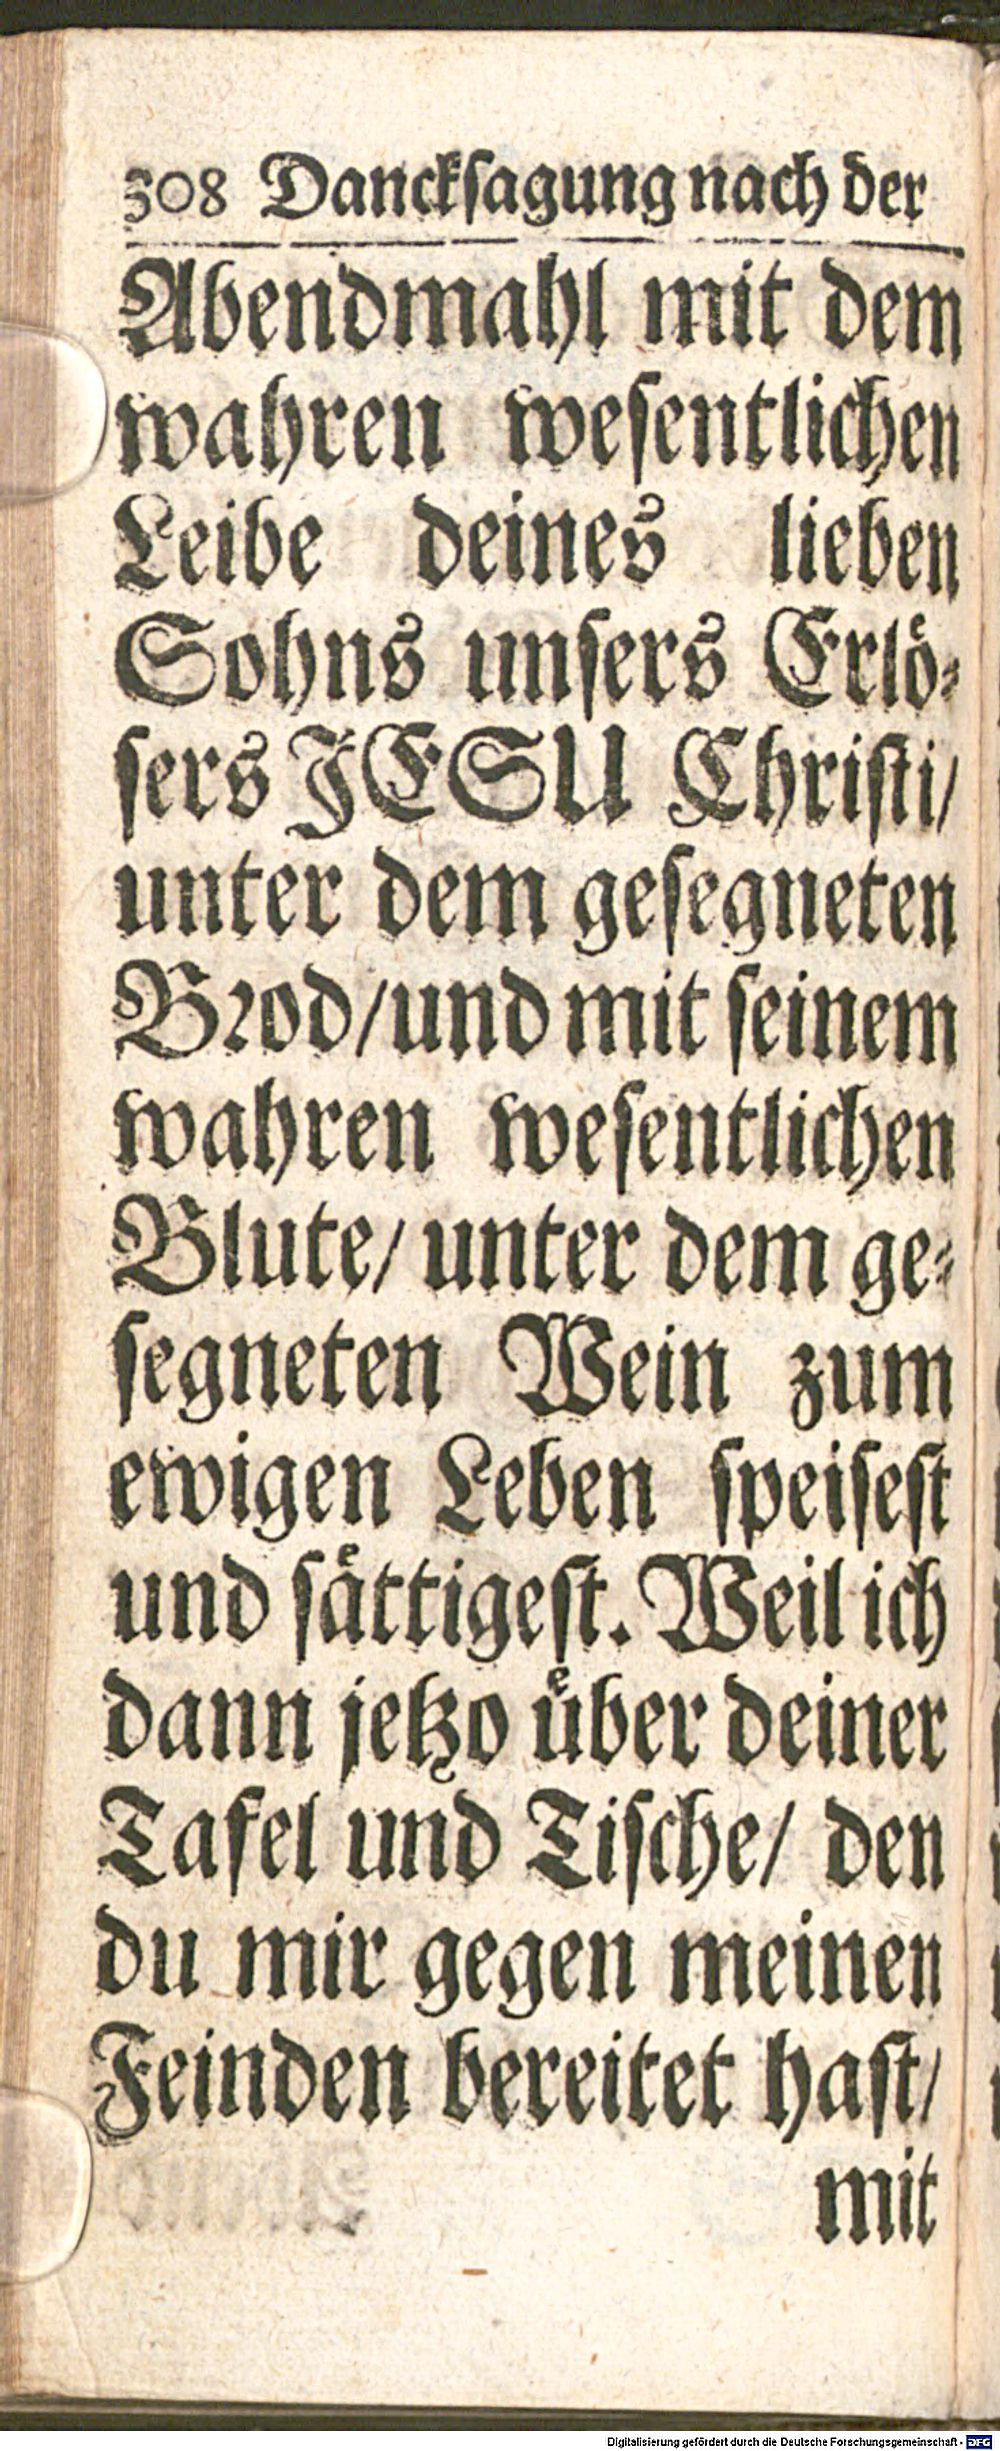 308 Danckſagung nach der
Abendmahl mit dem
wahren weſentlichen
Leibe deines lieben
Sohns unſers Erlö⸗
ſers JESU Chriſti/
unter dem geſegneten
Brod/und mit ſeinem
wahren weſentlichen
Blute/ unter dem ge⸗
ſegneten Wein zum
ewigen Leben ſpeiſeſt
und ſaͤttigeſt. Weil ich
dann jetzo uͤber deiner
Tafel und Tiſche/ den
du mir gegen meinen
Feinden bereitet haſt/
mit
Digitalisierung gefördert durch die Deutsche Forschungsgemeinschaft - DFG